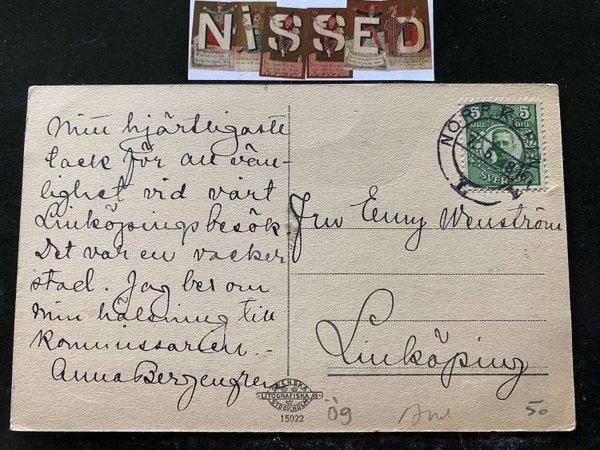 NISSED
Min hjärtligaste
tack för all vän-
lighet vid vårt
Linköpingsbesök
Det var en vacker
stad. Jag ber om
min hälsning till
Kommissarien.-
Anna Bergengren
Fru Enny Wenström
Linköping
5 5
ÖRE ÖRE
SVERIGE
NORRK
SVENSKA
LITOGRAFISKA AB
STOCKHOLM
15022
Ög
50